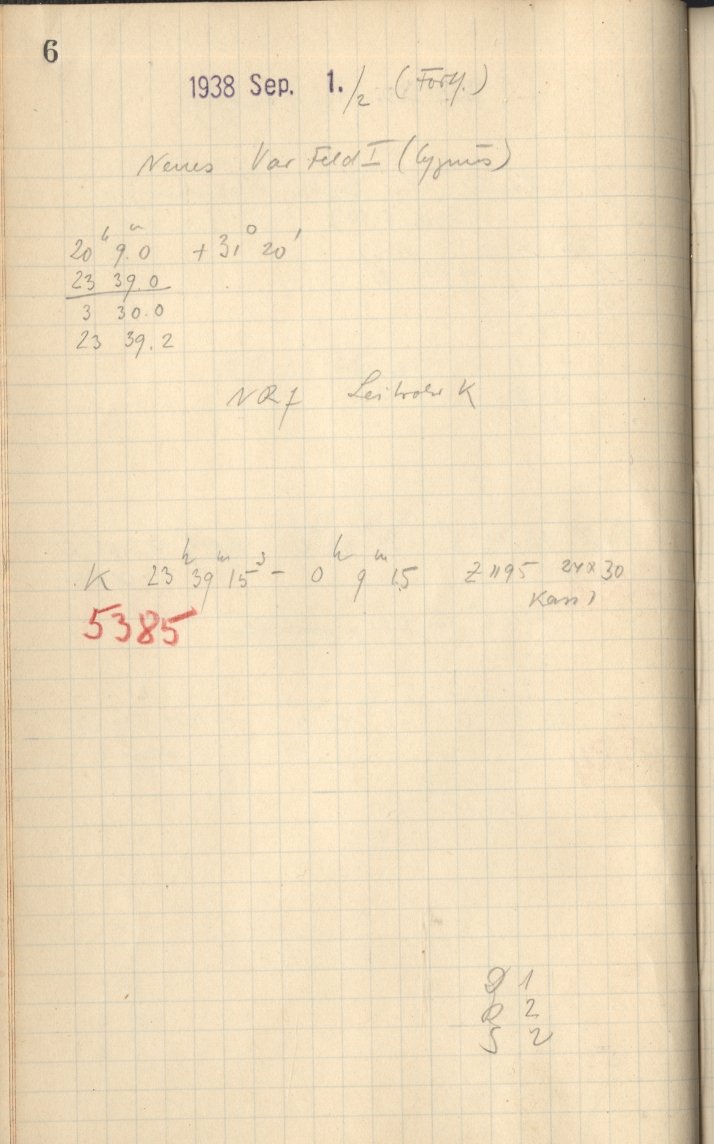 6
1938 Sep. 1./2 (Forts.)
Neues Var Feld I (Cygnus)
20ʰ 9ᵐ.0 + 31° 20'
23 39.0
3 30.0
23 39.2
NR 7 Leitrohr K
K 23ʰ 39ᵐ 15ˢ - 0ʰ 9ᵐ 15 Z 1195 24x30
Kass 1
5385
D 1
R 2
S 2